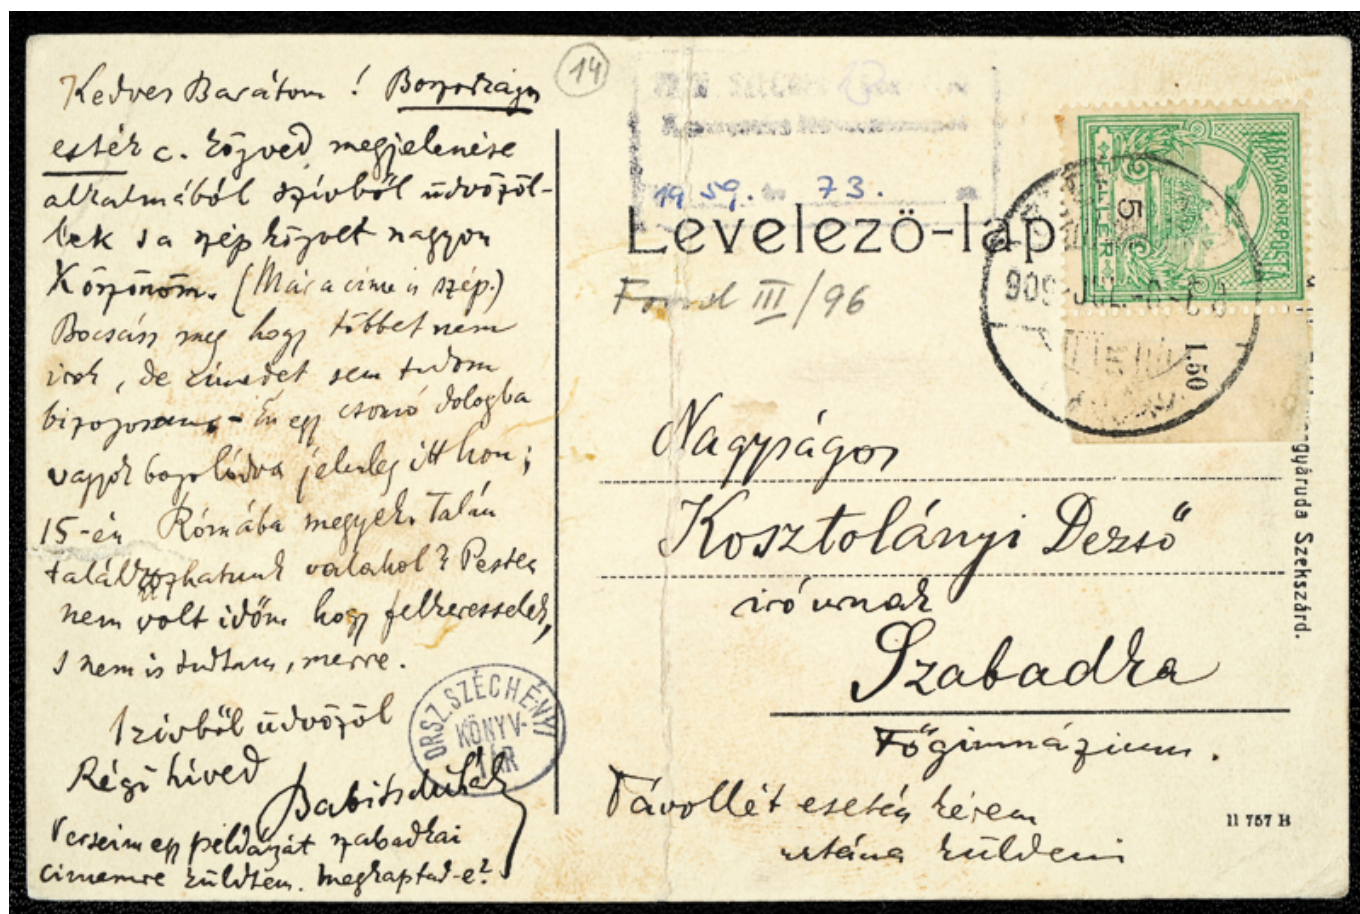 Kedves Barátom! Boszorkányos
esték c. könyved megjelenése
alkalmából szívből üdvözöl-
lek s a szép könyvet nagyon
köszönöm. (Már a címe is szép.)
Bocsáss meg hogy többet nem
irok, de címedet sem tudom
bizonyosan - Én egy csomó dologba
vagyok bogozódva jelenleg itthon;
15-én Rómába megyek. Talán
találkozhatunk valahol? Pesten
nem volt időm hogy felkeresselek,
s nem is tudtam, merre.
Szívből üdvözöl
Régi híved
Babits Mihály
Verseim egy példányát szabadkai
címemre küldtem. Megkaptad-e?
14
1959. 73.
Levelező-lap
Fond III/96
MAGYAR KIR. POSTA
5
FILLER
909 JUL.
1.50
Nagyságos
Kosztolányi Dezső
író úrnak
Szabadka
Főgimnázium.
Távollét esetén kérem
utána küldeni
ORSZ. SZÉCHÉNYI
KÖNYV-
TÁR
Szekszárd.
11 757 H